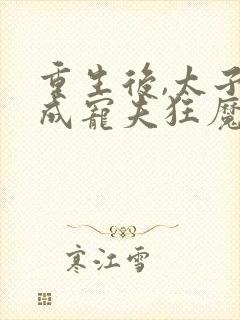 重生後,太子
成寵夫狂魔
寒江雪